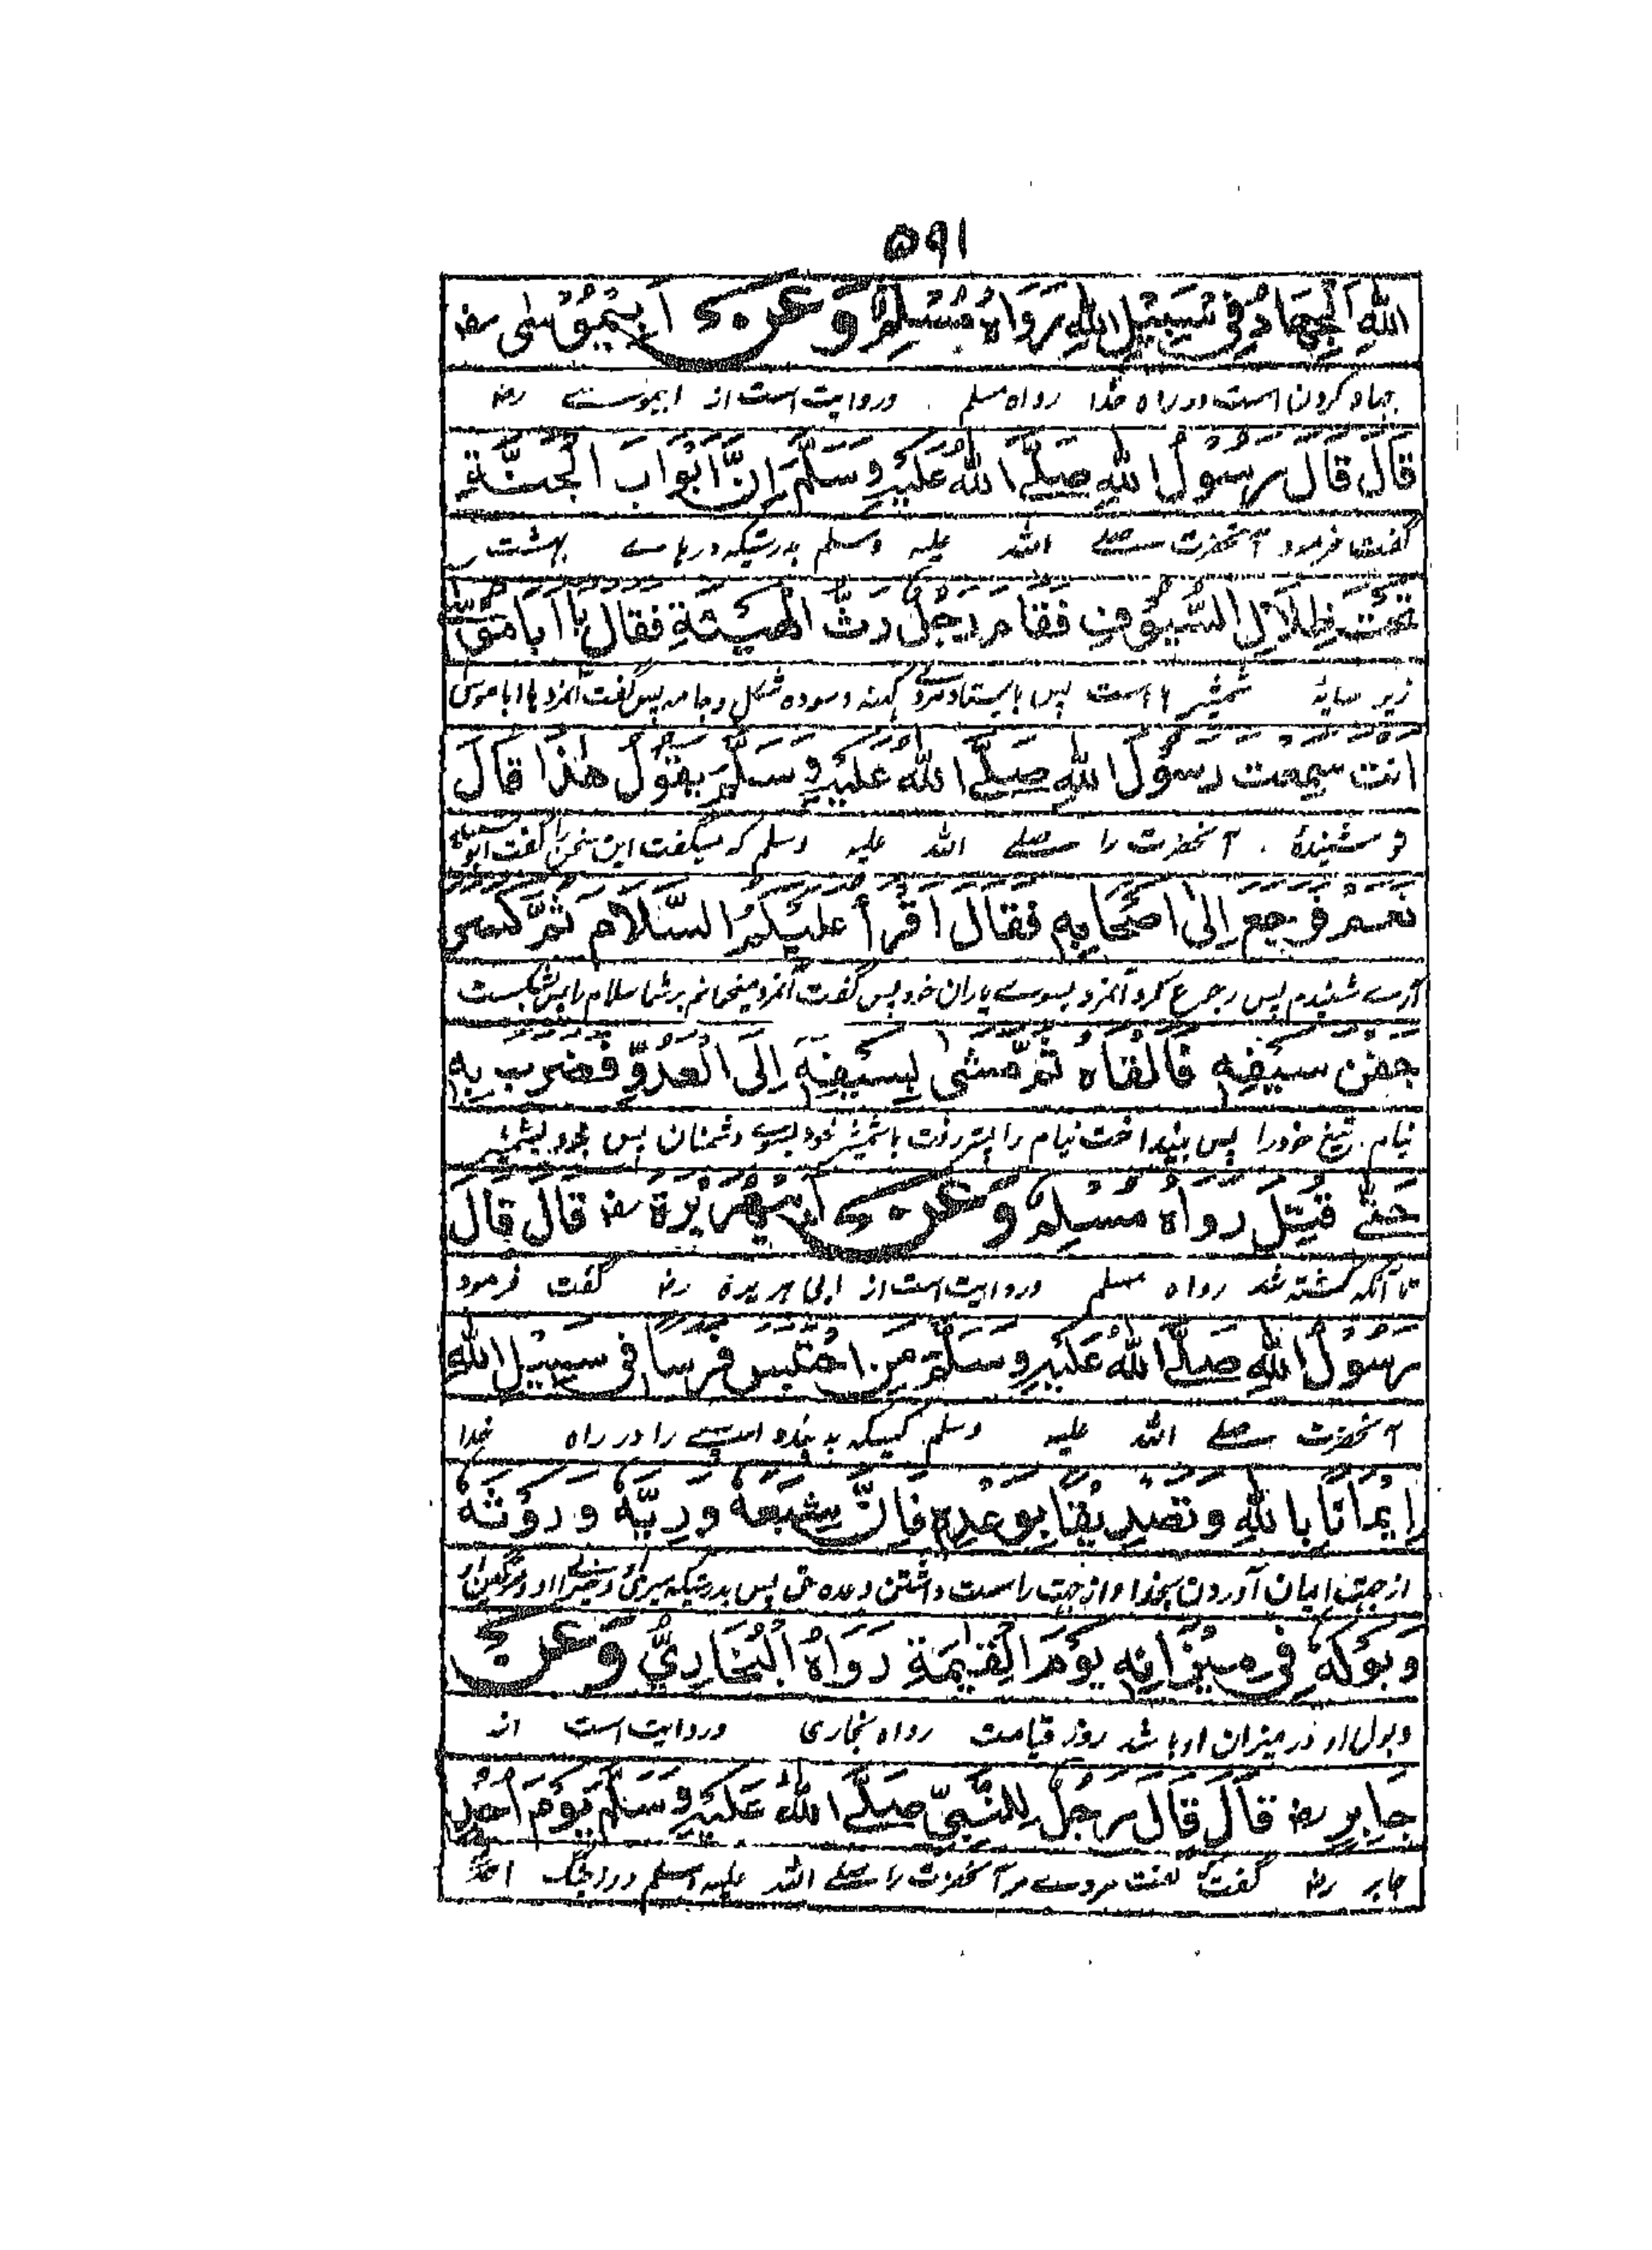 ۵۹۱
اللهِ اَلْجِهَادُ فِي سَبِيْلِ اللهِ رَوَاهُ مُسْلِمٌ وَعَنْ اَبِيْمُوْسٰى رضـ
جهاد کردن است در راه خدا رواه مسلم وروایت است از ابیموسے رضـ
قَالَ قَالَ رَسُوْلُ اللهِ صَلَّے اللهُ عَلَيْهِ وَسَلَّمَ اِنَّ اَبْوَابَ الْجَنَّةِ
گفت فرمود آنحضرت صلے الله علیه وسلم بدرستیکه درہاے بہشت
تَحْتَ ظِلَالِ السُّيُوْفِ فَقَامَ رَجُلٌ رَثُّ الْهَيْئَةِ فَقَالَ يَا اَبَا مُوْسٰى
زیر سایۂ شمشیرہا است پس بایستاد مردے کہنه وسوده شکل وجامه پس گفت آنمرد یا ابا موسی
اَنْتَ سَمِعْتَ رَسُوْلَ اللهِ صَلَّے اللهُ عَلَيْهِ وَسَلَّمَ يَقُوْلُ هٰذَا قَالَ
تو شنیدۂ آنحضرت را صلے الله علیه وسلم که میگفت این سخن را گفت ابوموسی
نَعَمْ فَرَجَعَ اِلٰى اَصْحَابِهِ فَقَالَ اَقْرَأُ عَلَيْكُمُ السَّلَامَ ثُمَّ كَسَرَ
آرے شنیدم پس رجوع کرد آنمرد بسوے یاران خود پس گفت آنمرد میخوانم برشما سلام را پس شکست
جَفْنَ سَيْفِهِ فَاَلْقَاهُ ثُمَّ مَشٰى بِسَيْفِهِ اِلَى الْعَدُوِّ فَضَرَبَ بِهِ
نیام تیغ خودرا پس بینداخت نیام را پستر رفت باشمشیر خود بسوے دشمنان پس بزد بشمشیر
حَتّٰے قُتِلَ رَوَاهُ مُسْلِمٌ وَعَنْ اَبِيْهُرَيْرَةَ رضـ قَالَ قَالَ
تا آنکه کشته شد رواه مسلم وروایت است از ابی هریره رضـ گفت فرمود
رَسُوْلُ اللهِ صَلَّے اللهُ عَلَيْهِ وَسَلَّمَ مَنِ احْتَبَسَ فَرَسًا فِي سَبِيْلِ اللهِ
آنحضرت صلے الله علیه وسلم کسیکه به بندد اسپے را در راه خدا
اِيْمَانًا بِاللهِ وَتَصْدِيْقًا بِوَعْدِهِ فَاِنَّ شِبَعَهُ وَرِيَّهُ وَرَوْثَهُ
از جہت ایمان آوردن بخدا واز جہت راست داشتن وعده حق پس بدرستیکه سیری وسیرابی او وسرگین او
وَبَوْلَهُ فِي مِيْزَانِهِ يَوْمَ الْقِيٰمَةِ رَوَاهُ الْبُخَارِيُّ وَعَنْ
وبول او در میزان او باشد روز قیامت رواه بخاری وروایت است از
جَابِرٍ رضـ قَالَ قَالَ رَجُلٌ لِلنَّبِيِّ صَلَّے اللهُ عَلَيْهِ وَسَلَّمَ يَوْمَ اُحُدٍ
جابر رضـ گفت گفت مردے مر آنحضرت را صلے الله علیه وسلم در روز جنگ احد